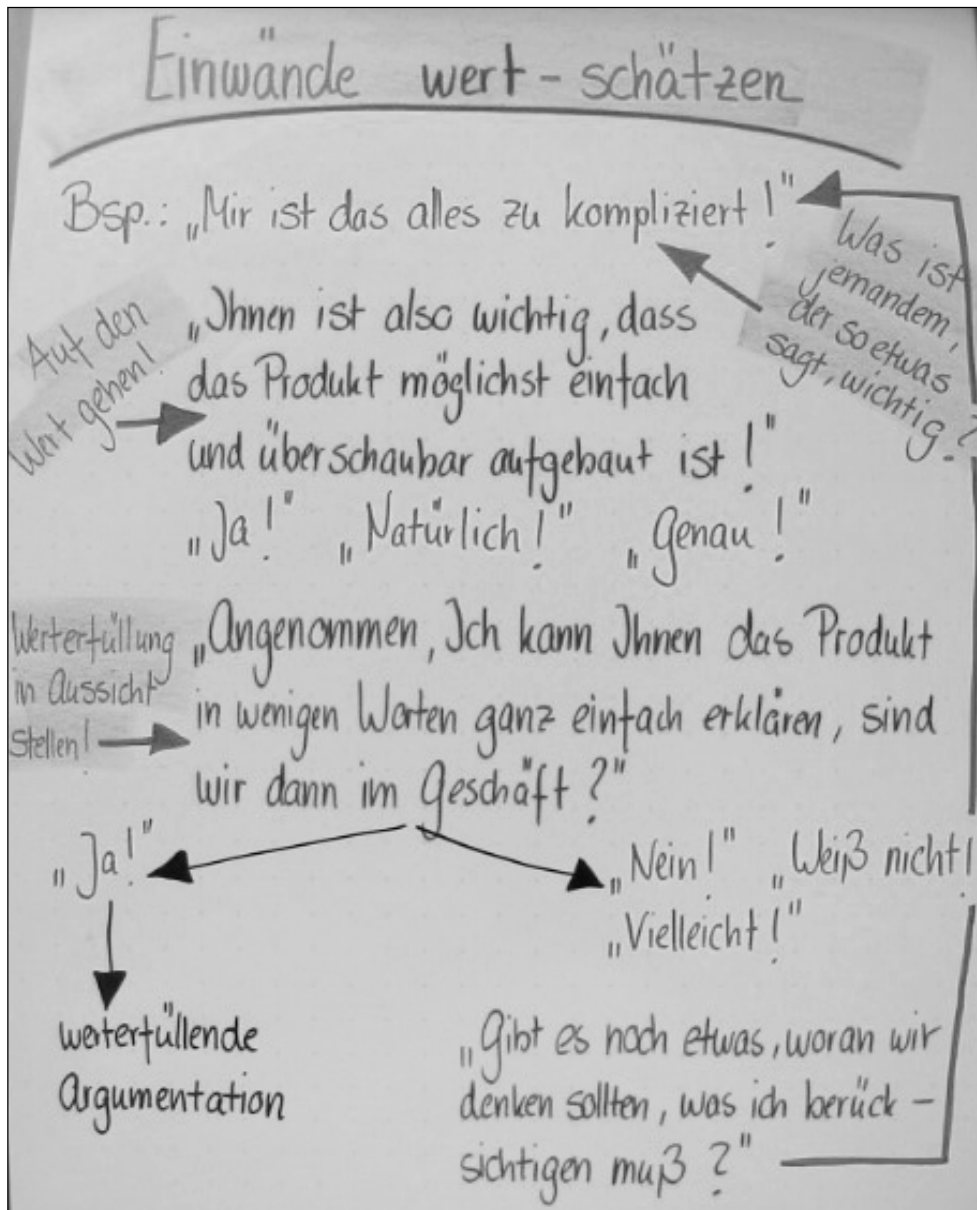 Einwände wert - schätzen
Bsp.: „Mir ist das alles zu kompliziert!"
Was ist
jemandem,
der so etwas
sagt, wichtig?
Auf den
Wert gehen!
„Ihnen ist also wichtig, dass
das Produkt möglichst einfach
und überschaubar aufgebaut ist!"
„Ja!" „Natürlich!" „Genau!"
Werterfüllung
in Aussicht
stellen!
„Angenommen, Ich kann Ihnen das Produkt
in wenigen Worten ganz einfach erklären, sind
wir dann im Geschäft?"
„Ja!"
„Nein!" „Weiß nicht!
„Vielleicht!"
werterfüllende
Argumentation
„Gibt es noch etwas, woran wir
denken sollten, was ich berück -
sichtigen muß?"